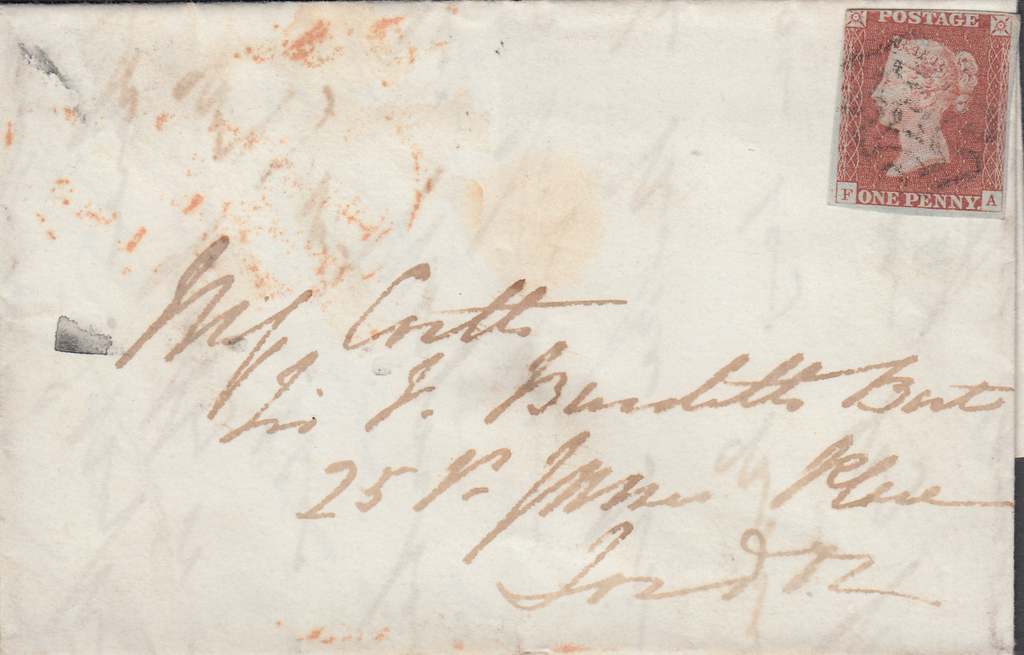 POSTAGE
F ONE PENNY. A
Miss Coutts
Sir F. Burdetts Bart
25 St. James's Place
London